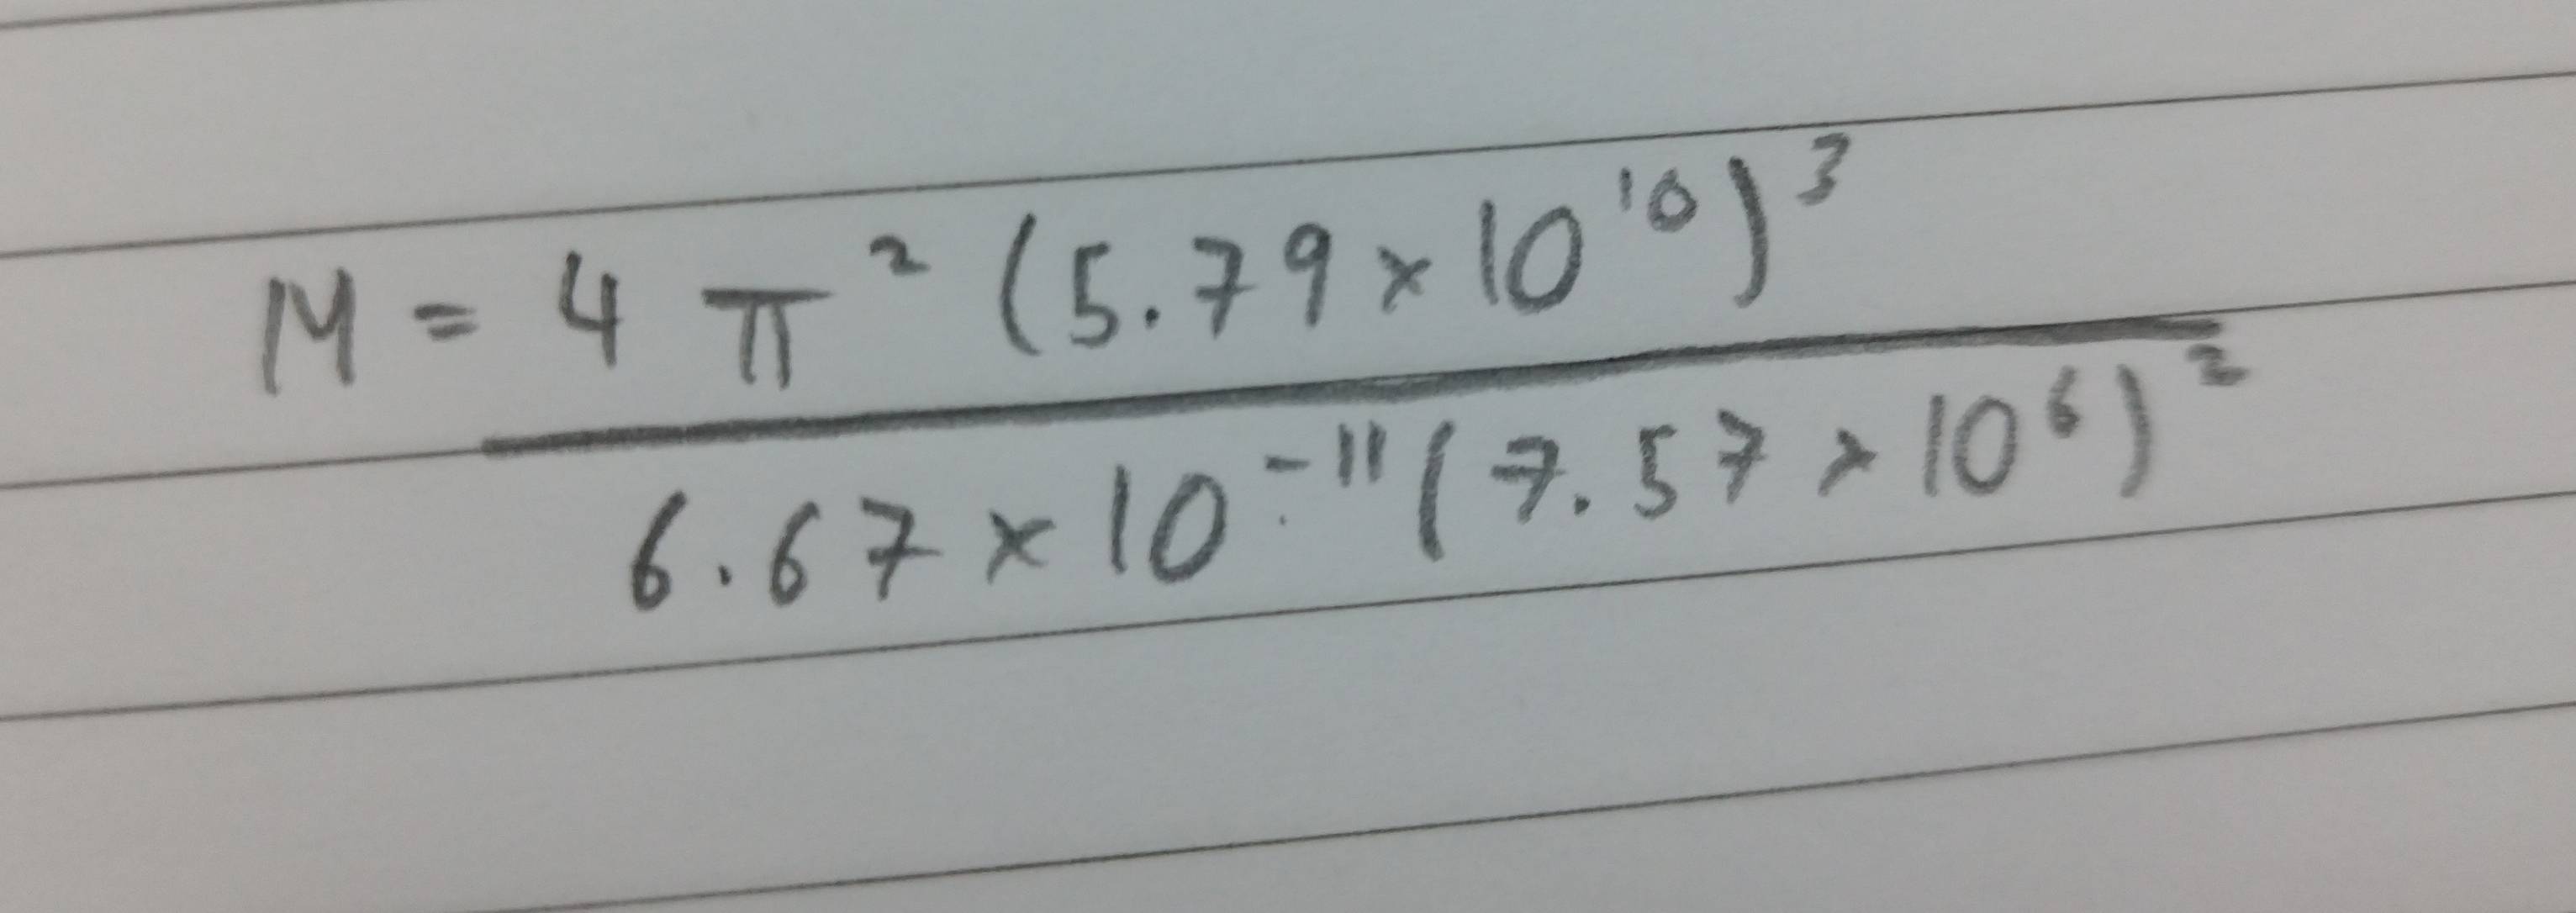 M = 4 π² (5.79 × 10¹⁰)³
6.67 × 10⁻¹¹ (7.57 × 10⁶)²